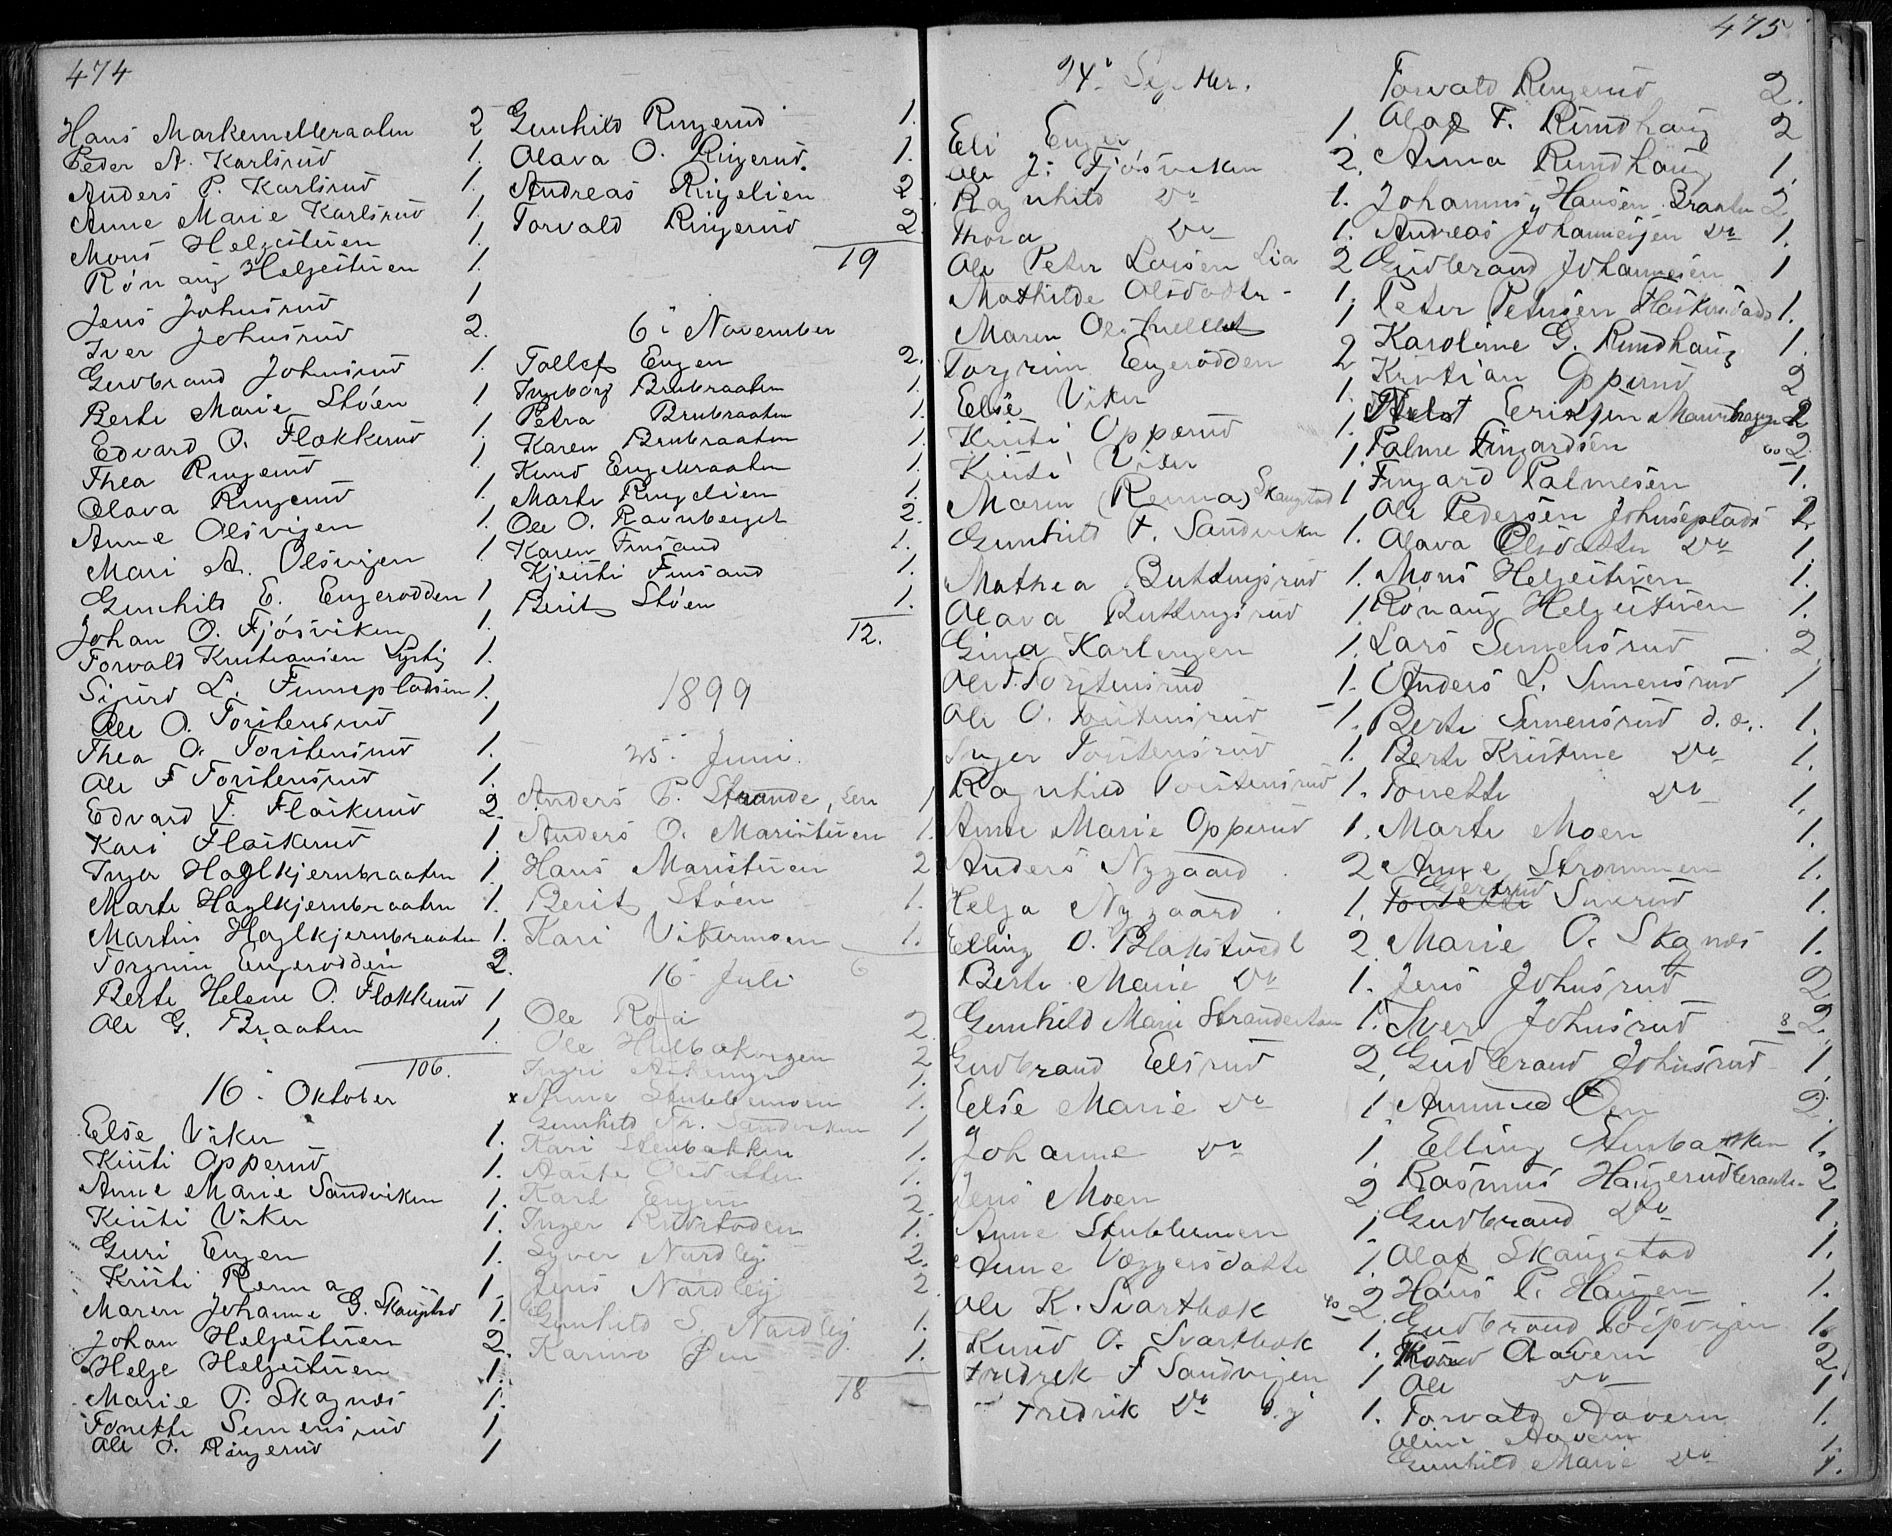 474
Hans Markernebraaten 2
Peder A. Karlsrud 1.
Anders P. Karlsrud 1.
Anne Marie Karlsrud 1.
Mons Helgestuen 1.
Rønaug Helgestuen 1.
Jens Johnsrud 1
Iver Johnsrud 2.
Gudbrand Johnsrud 1.
Berte Marie Støen 1
Edvard O. Flakkerud 1.
Thea Ringerud 1
Olava Ringerud 1.
Anne Olsvigen 1.
Mari A. Olsvigen 1
Gunhild E. Engerodden 1
Johan O. Fjøsviken 1.
Torvald Kristiansen 1.
Sigurd L. Finnepladsen 1.
Ole O. Torstensrud 1
Thea O. Torstensrud 1.
Ole F Torstensrud 1.
Edvard T. Flaskerud 2.
Kari Flaskerud 1
Inger Haglkjernbraaten 1.
Marte Haglkjernbraaten 1.
Martin Haglkjernbraaten 1.
Torgrim Engerodden 2.
Berte Helene O. Flakkerud 1
Ole G. Braaten 1.
106.
16. Oktober
Else Viker 1.
Kristi Opperud 1.
Anne Marie Sandviken 1.
Kristi Viker 1.
Guri Engen 1.
Kristi Renna 1.
Maren Johanne G. Skaugstad 1.
Johan Helgestuen 2.
Helge Helgestuen 1.
Marie O. Skagnæs 1.
Tonette Semensrud 1
Ole O. Ringerud 1
Gunhild Ringerud 1.
Olava O. Ringerud. 1.
Andreas Ringelien 2
Torvald Ringerud 2
19
6. November
Tollef Engen 2.
Ingeborg Brubraaten 1.
Petra Brubraaten 1.
Karen Brubraaten 1
Knud Engebraaten 1.
Marte Ringelien 1.
Ole O. Ravnberget 2.
Karen Finsand 1.
Kjersti Finsand 1
Berit Støen 1.
12.
1899
25. Juni.
Anders P. Strande, sen 1
Anders O. Maristuen 1.
Hans Maristuen 2
Berit Støen 1.
Kari Vikermoen 1.
6
16. Juli
Ole Roa 2.
Ole Hulbakvegen 2
Ingri 1.
x Anne Stubbemoen 1.
Gunhild Fr. Sandviken 1
Kari Stenbakken 1.
Aaste Olsdatter 1.
Karl Engen 2.
Inger Kvistoden 1.
Syver Nardlej 2.
Jens Nardlej 2
Gunhild S. Nardlej 1.
Karine Øen 1.
18
475
24. Septbr.
Eli Enger 1.
Ole J. Fjøsviken 2.
Ragnhild Do 1.
Thora Do 1.
Ole Peter Larsen Lia 2
Mathilde Olsdatter 1.
Maren 1
Torgrim Engerodden 2
Else Viker 1.
Kristi Opperud 1.
Kristi Viker 1.
Maren (Renna) Skaugstad 1
Gunhild F. Sandviken 1.
Mathea Buttingsrud 1.
Olava Buttingsrud 1.
Gina Karlengen 1.
Ole F. Torstensrud 1.
Ole O. Torstensrud 1.
Inger Torstensrud 1.
Ragnhild Torstensrud 1.
Anne Marie Opperud 1.
Anders Nygaard 2
Helga Nygaard 1.
Elling O. Blakstvedt 2
Berte Marie Do 1.
Gunhild Marie Strandestuen 1.
Gudbrand Elsrud 2.
Else Marie Do 1
Johanne Do 1.
Jens Moen 2
Anne Stubbemoen 1
Anne Væggersdatter 1.
Ole K. Svartbæk 40 2.
Knud O. Svartbæk 1.
Fredrek F Sandvigen 1
Fredrik Do 1.
Torvald Ringerud 2.
Olaf F. Rundhaug 2
Anna Rundhaug 1.
Johannes Hansen Braaten 2
Andreas Johannesen Do 1.
Gudbrand Johannesen 1
Peter Petersen 1.
Karoline G. Rundhaug 1.
Kristian Opperud 2
Erikssen 2
Palme Fingardsen 60 2
Fingard Palmesen 1.
Ole Pedersen Johnseplads 2
Olava Olsdatter Do 1
Mons Helgestuen 1.
Rønaug Helgestuen 1.
Lars Semensrud 2
Anders L. Semensrud 1
Berte Semensrud d. æ. 1.
Berte Kristine Do 1.
Tonette Do 1.
Marte Moen 1.
Anne Strømmen 1.
Gertrud Smerud 1.
Marie O. Skagnæs 1.
Jens Johnsrud 2
Iver Johnsrud 8 2.
Gudbrand Johnsrud 1.
Ammund Øen 2.
Elling Stenbakken 1.
Rasmus Haugerudbraaten 2
Gudbrand Do 1.
Olaf Skaugstad 1.
Hans P. Haugen 1.
Gudbrand 1.
Aavern 2.
Ole Do 1
Torvald Aavern 1.
Oline Aavern 1.
Gunhild Marie Do 1.